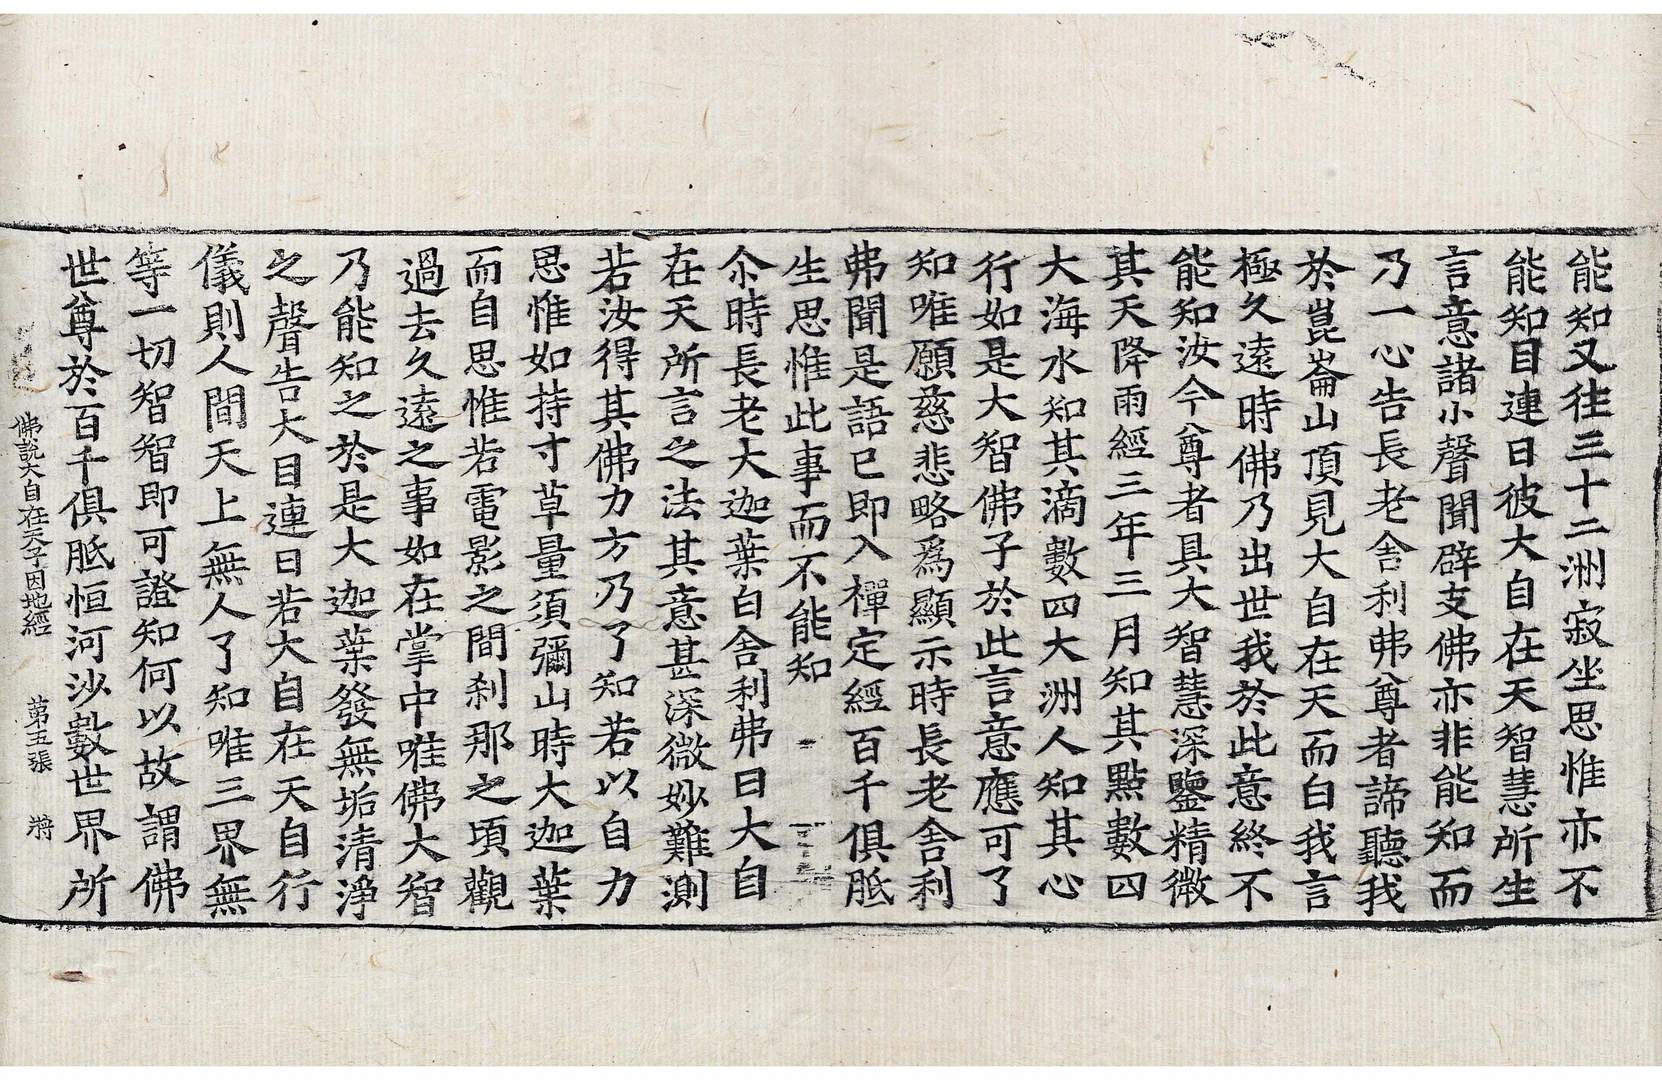 能知又往三十二洲寂坐思惟亦不
能知目連曰彼大自在天智慧所生
言意諸小聲聞辟支佛亦非能知而
乃一心告長老舍利弗尊者諦聽我
於崑崙山頂見大自在天而白我言
極久遠時佛乃出世我於此意終不
能知汝今尊者具大智慧深鑒精微
其天降雨經三年三月知其點數四
大海水知其滴數四大洲人知其心
行如是大智佛子於此言意應可了
知唯願慈悲略為顯示時長老舍利
弗聞是語已即入禪定經百千俱胝
生思惟此事而不能知
尒時長老大迦葉白舍利弗曰大自
在天所言之法其意甚深微妙難測
若汝得其佛力方乃了知若以自力
思惟如持寸草量須彌山時大迦葉
而自思惟若電影之間剎那之頃觀
過去久遠之事如在掌中唯佛大智
乃能知之於是大迦葉發無垢清淨
之聲告大目連曰若大自在天自行
儀則人間天上無人了知唯三界無
等一切智智即可證知何以故謂佛
世尊於百千俱胝恒河沙數世界所
佛說大自在天子因地經　第五張　㢡